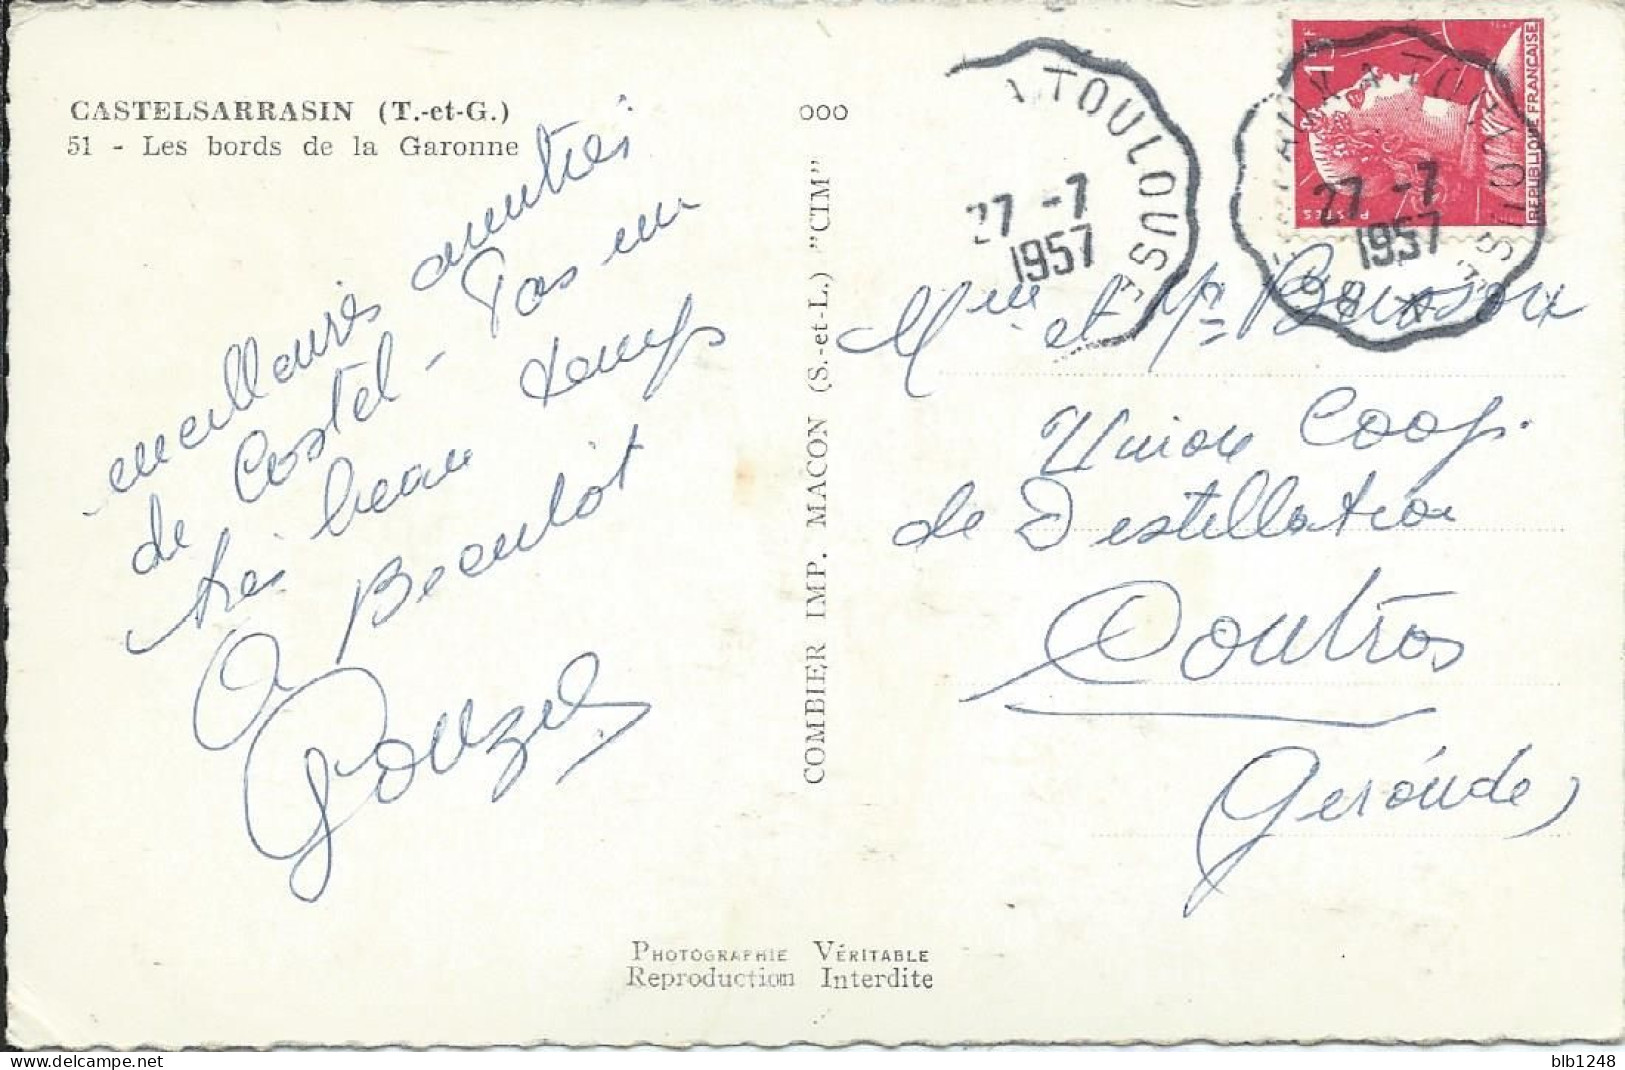 CASTELSARRASIN (T.-et-G.)
51 - Les bords de la Garonne
meilleures amitiés
de Castel - Pas un
très beau temps
A Bientôt
COMBIER IMP. MACON (S.-et-L.) "CIM"
000
A TOULOUSE
27 -7
1957
15F
POSTES
REPUBLIQUE FRANÇAISE
A TOULOUSE
27 -7
1957
Mme et Mr
Union Coop.
de Distellation
Coutras
Gironde
PHOTOGRAPHIE VÉRITABLE
Reproduction Interdite
blb1248